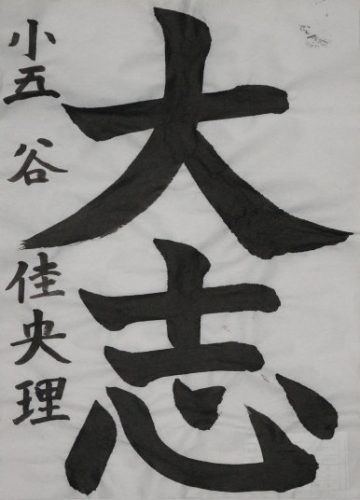 大志
小五 谷 佳央理